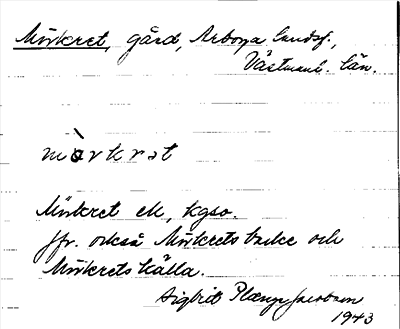 Mörkret, gård, Arboga landsf.,
Västmanl. län.
mò̀rkrət
Mörkret ek, kgso.
Jfr. också Mörkrets backe och
Mörkrets källa.
Sigbrit Plænge Jacobson
1943